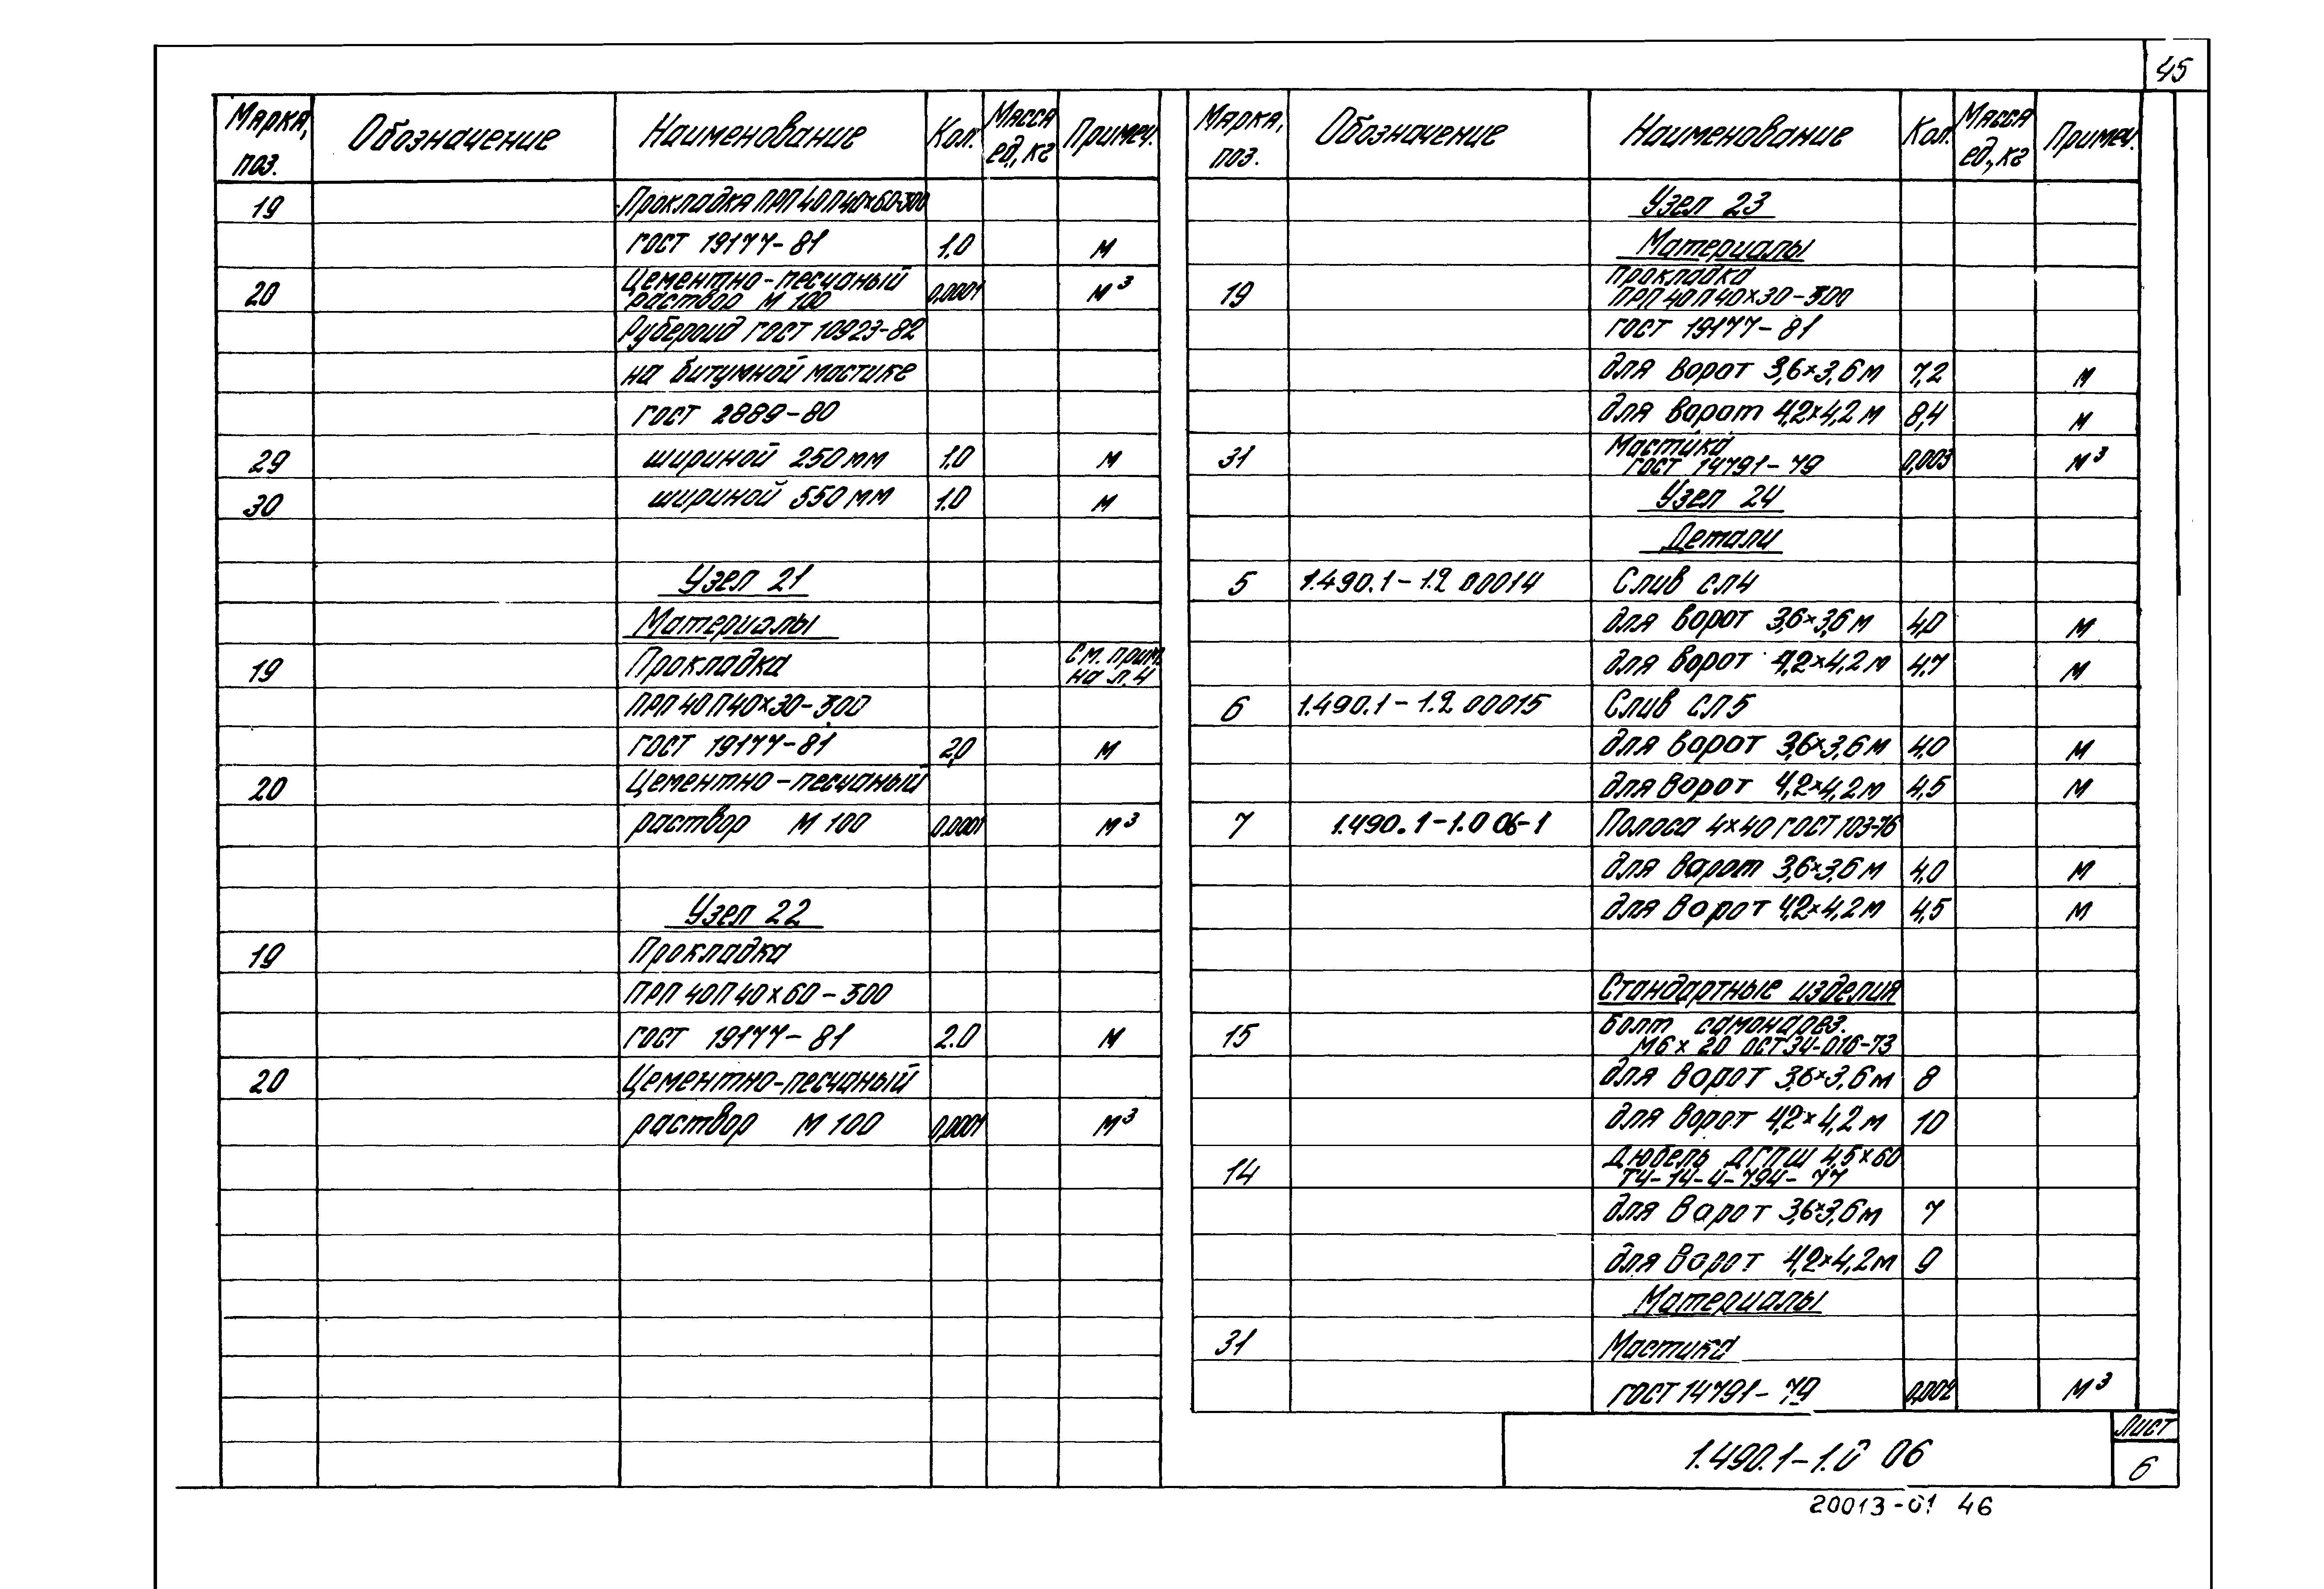 45
Марка, поз. Обозначение Наименование Кол. Масса ед., кг Примеч.
19 Прокладка ПРП 40П40×60-300
ГОСТ 19177-81 1,0 м
20 Цементно-песчаный раствор М 100 0,0001 м³
Рубероид ГОСТ 10923-82
на битумной мастике
ГОСТ 2889-80
29 шириной 250 мм 1,0 м
30 шириной 550 мм 1,0 м
Узел 21
Материалы
19 Прокладка См. прим. на л. 4
ПРП 40П40×30-300
ГОСТ 19177-81 2,0 м
20 Цементно-песчаный
раствор М 100 0.0001 м³
Узел 22
19 Прокладка
ПРП 40П40×60-300
ГОСТ 19177-81 2.0 м
20 Цементно-песчаный
раствор М 100 0,0001 м³
Марка, поз. Обозначение Наименование Кол. Масса ед., кг Примеч.
Узел 23
Материалы
19 Прокладка ПРП 40П40×30-300
ГОСТ 19177-81
для ворот 3,6×3,6 м 7,2 м
для ворот 4,2×4,2 м 8,4 м
31 Мастика ГОСТ 14791-79 0,003 м³
Узел 24
Детали
5 1.490.1-1.2 00014 Слив СЛ4
для ворот 3,6×3,6 м 4,0 м
для ворот 4,2×4,2 м 4,7 м
6 1.490.1-1.2 00015 Слив СЛ5
для ворот 3,6×3,6 м 4,0 м
для ворот 4,2×4,2 м 4,5 м
7 1.490.1-1.0 06-1 Полоса 4×40 ГОСТ 103-76
для ворот 3,6×3,6 м 4,0 м
для ворот 4,2×4,2 м 4,5 м
Стандартные изделия
15 Болт самонарез. М6×20 ОСТ 34-016-73
для ворот 3,6×3,6 м 8
для ворот 4,2×4,2 м 10
14 Дюбель ДГПШ 4,5×60 Т4-14-4-794-77
для ворот 3,6×3,6 м 7
для ворот 4,2×4,2 м 9
Материалы
31 Мастика
ГОСТ 14791-79 0,002 м³
1.490.1-1.0 06
Лист
6
20013-01 46